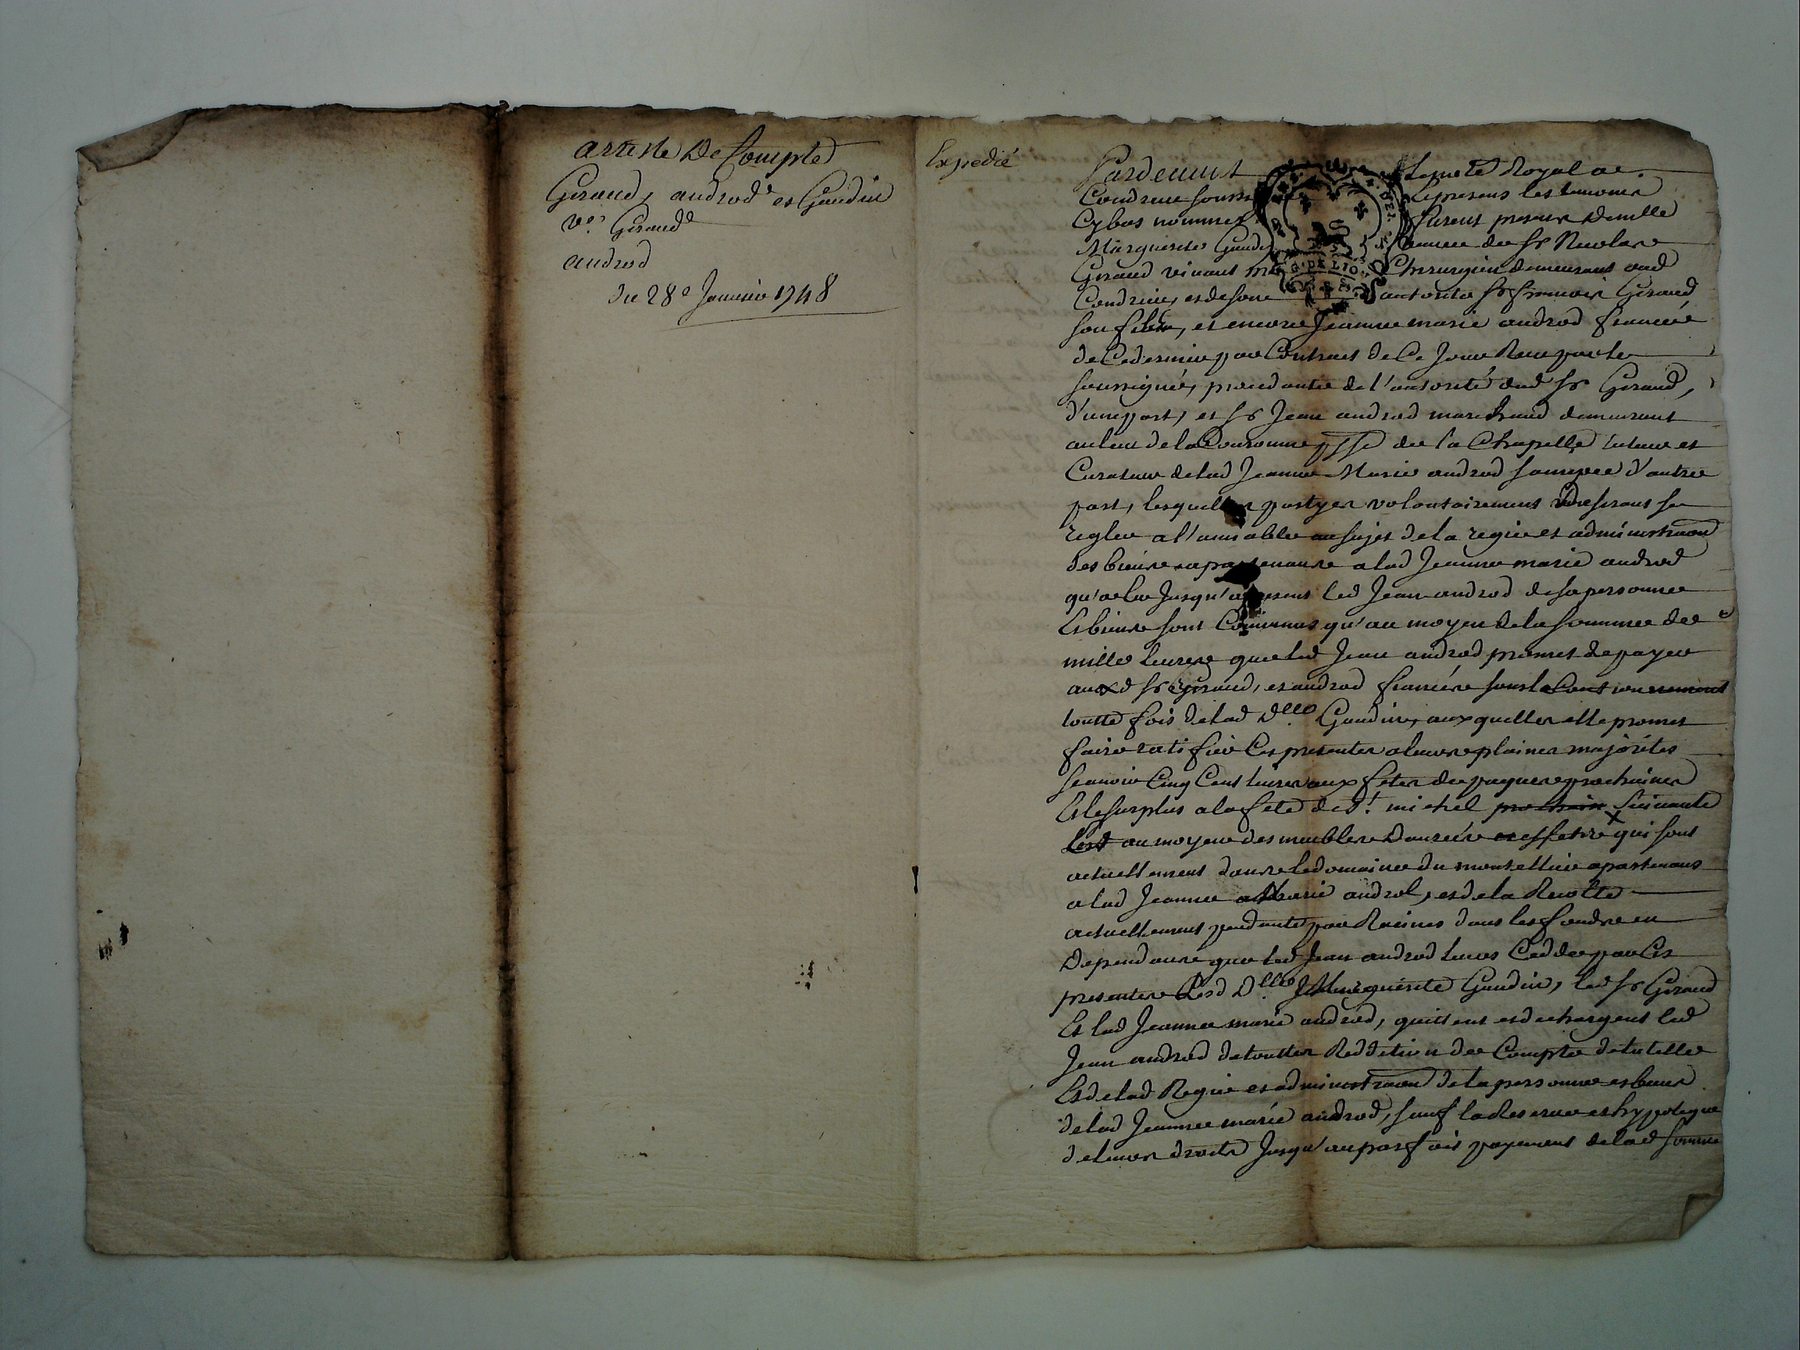 arreste De Compte
Giraud, androd et Gaudin
ve. Giraud
androd
Du 28e Janvier 1748
Expedié
Pardevant Le notre Royal a
Condrieu soussi et presens les temoins
Cybas nommes furent presens Demlle
Marguerite Gaudi veuve de Sr Nicolas
Giraud vivant me Chirurgien demeurant aud
Condrieu, et de son autorité Sr francois Giraud
son fils, et encore Jeanne marie androd fiancée
de Ce dernier par Contract de Ce Jour Receu par le
soussigné, procedante de l'autorité dud Sr Giraud,
d'une part, et Sr Jean androd marchand demeurant
au lieu de la Couronne psse de la Chapelle tuteur et
Curateur de lad Jeanne Marie androd d'autre
part, lesquelles partyes volontairement desirant se
regler a l'amiable au sujet de la regie et administraon
des biens apartenans a lad Jeanne marie androd
qu'a eu Jusqu'a present led Jean androd de sa personne
Et biens sont Convenus qu'au moyen de la somme de
mille livres que led Jean androd promet de payer
auxd Sr Giraud, et androd fiancés sous le Cautionnement
toutte fois de lad Dlle Gaudin, auxquelles elle promet
faire ratifier Ces presentes a leurs plaines majorités
scavoir Cinq Cent livres aux fetes de paques prochaines
Et le surplus a la fete de St michel prochain suivante
Led au moyen des meubles Danrées et effets qui sont
actuellement dans le domaine du montellier apartenant
a lad Jeanne Marie androd, et de la Recolte
actuellement pendante par Racines dans les fonds en
Dependans que led Jean androd leurs Cedde par Ces
presentes Lesd Dlle Marguerite Gaudin, led Sr Giraud
Et lad Jeanne marie androd, quittent et dechargent led
Jean androd de toutte Reddition de Compte de tutelle
Et de lad Regie et administraon de la personne et biens
de lad Jeanne marie androd, sauf la Reserve et hypoteque
de leurs droits Jusqu'au parfait payement de lad somme